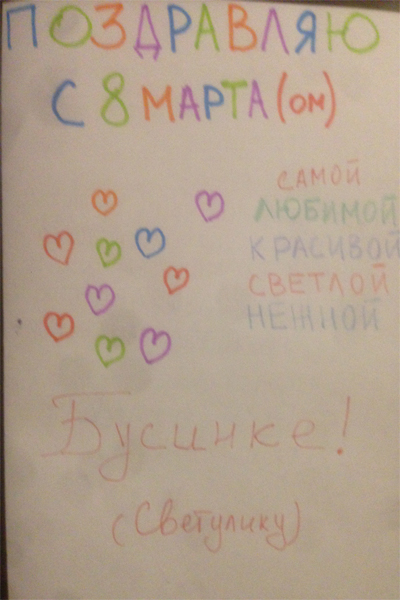 ПОЗДРАВЛЯЮ
С 8 МАРТА (ОМ)
САМОЙ
ЛЮБИМОЙ
КРАСИВОЙ
СВЕТЛОЙ
НЕЖНОЙ
Бусинке!
(Светулику)